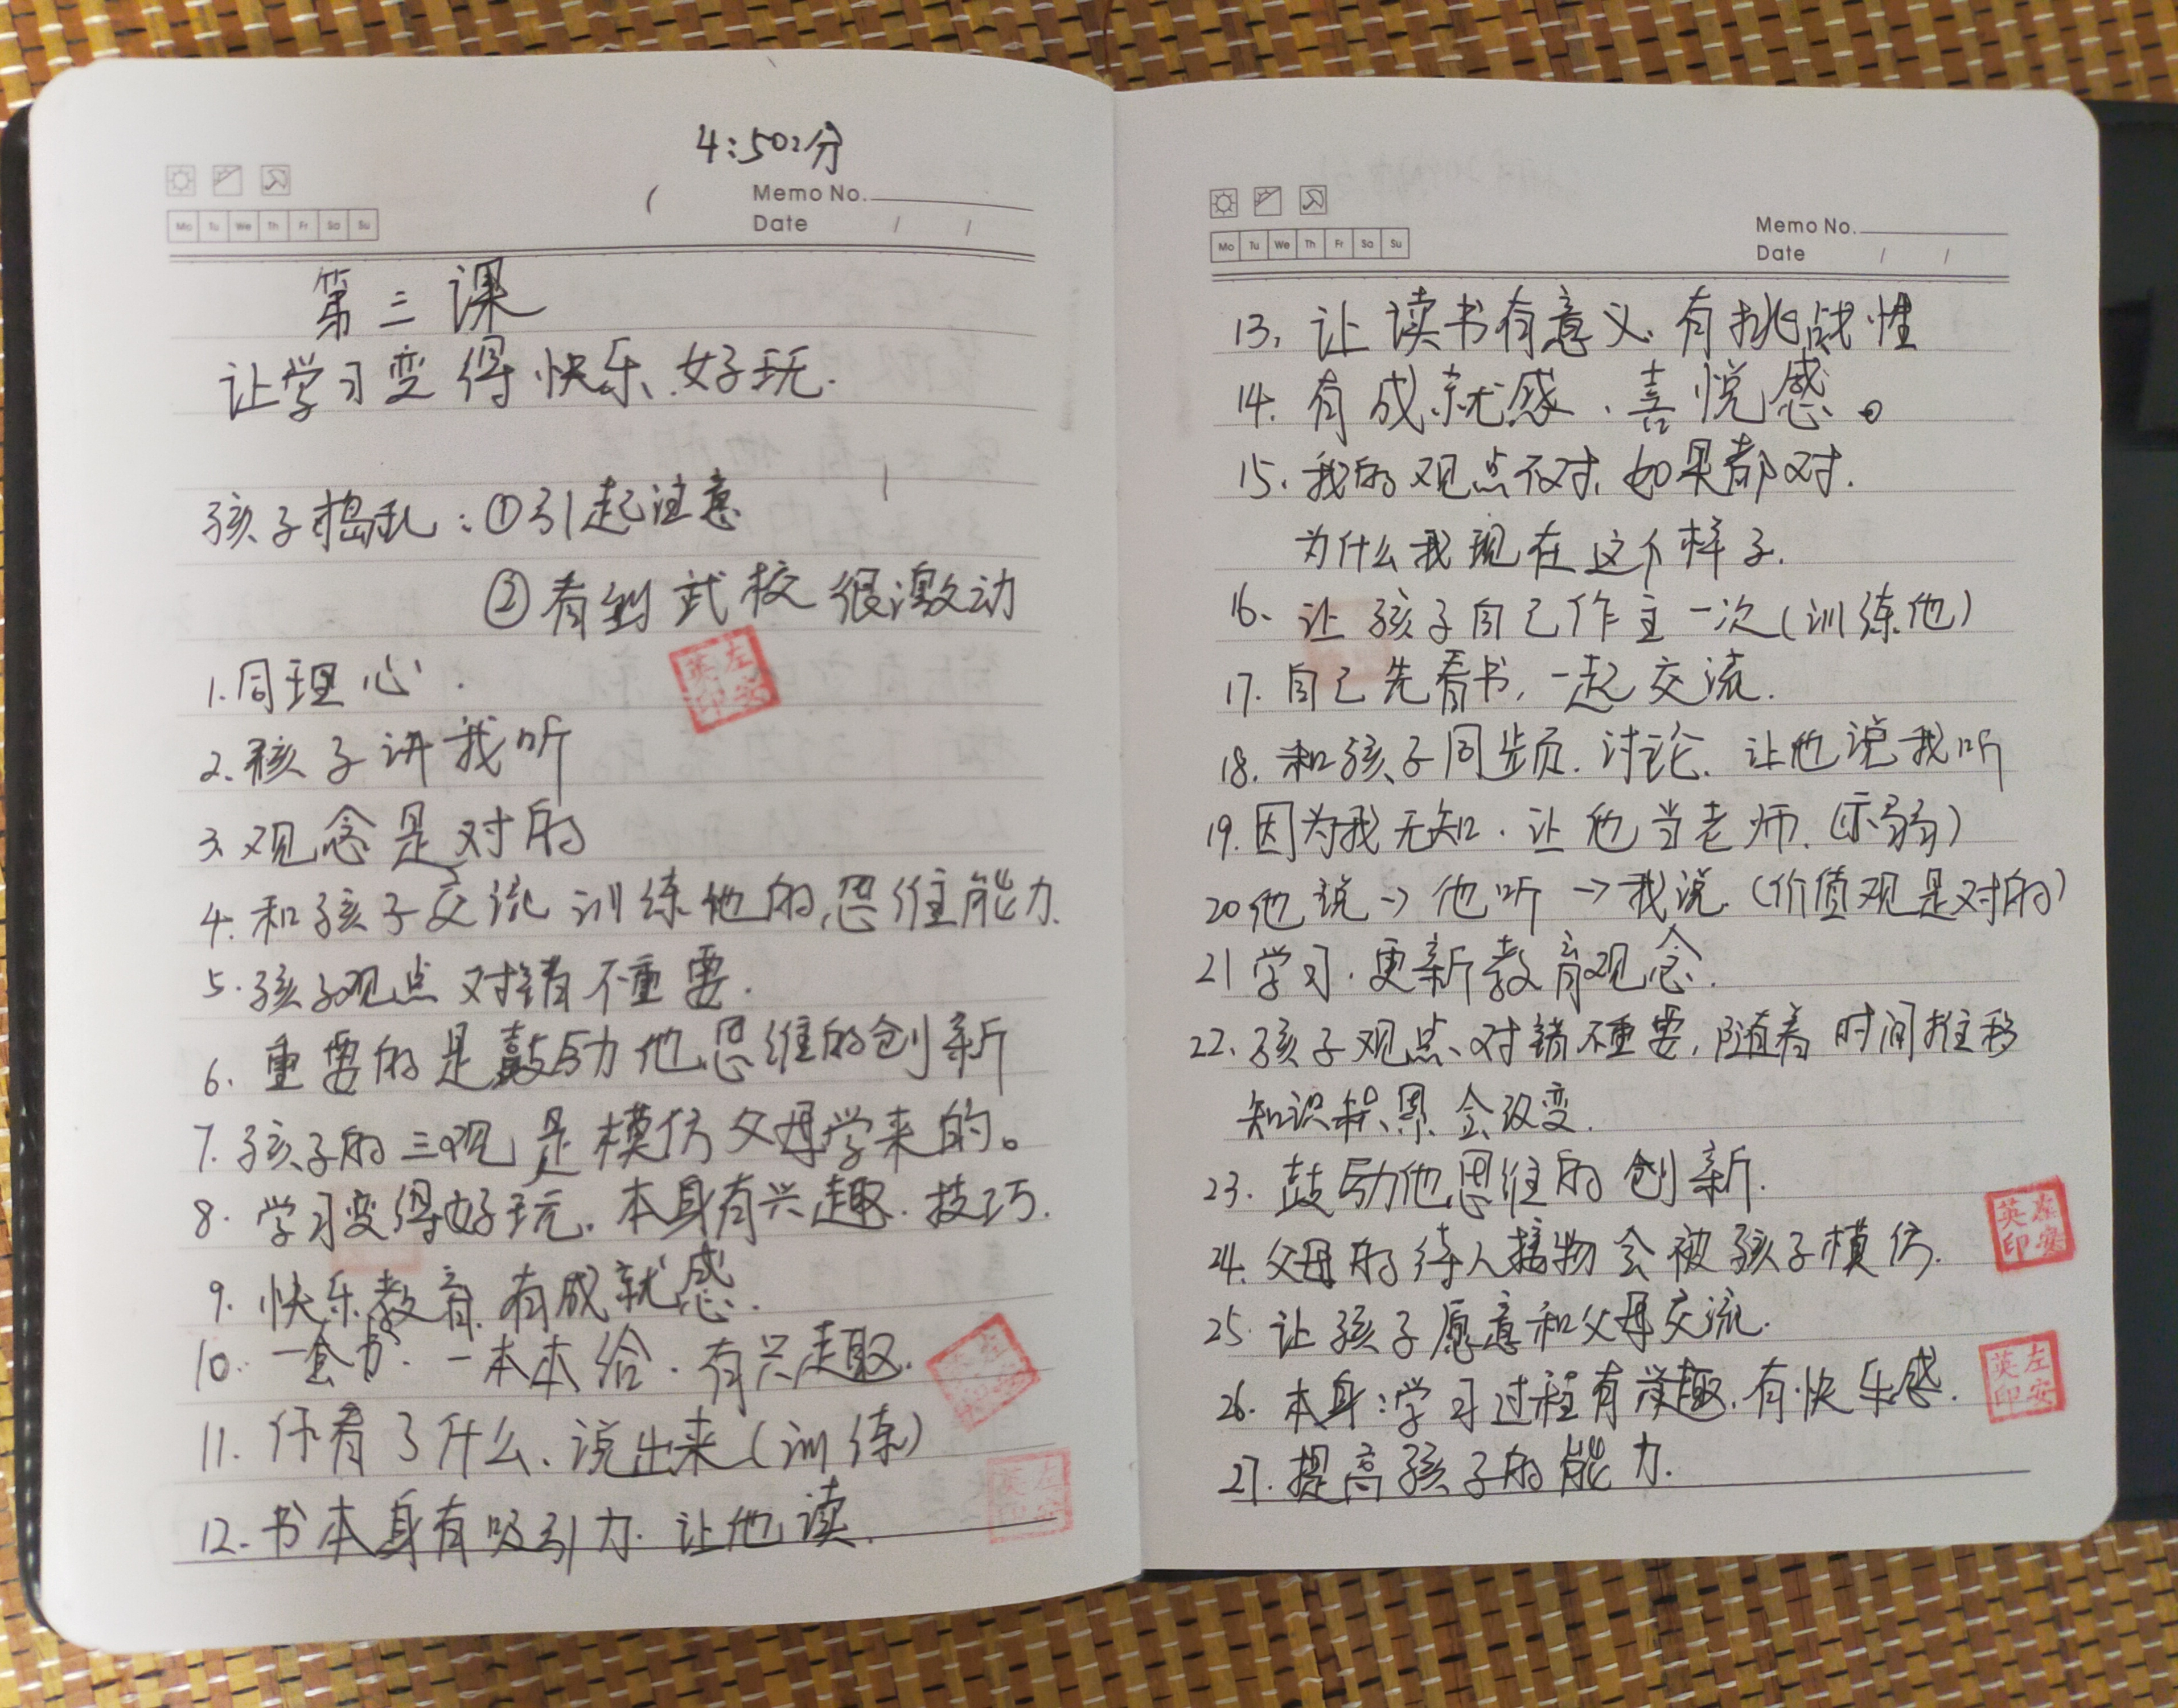 4:50分
Memo No.
Date / /
Mo Tu We Th Fr Sa Su
第三课
让学习变得快乐、好玩.
孩子捣乱：①引起注意
②看到武校很激动
1.同理心.
2.孩子讲我听
3.观念是对的
4.和孩子交流训练他的思维能力.
5.孩子观点对错不重要.
6.重要的是鼓励他思维的创新
7.孩子的三观是模仿父母学来的。
8.学习变得好玩.本身有兴趣.技巧.
9.快乐教育.有成就感.
10.一套书.一本本给.有兴趣.
11.你看了什么、说出来(训练)
12.书本身有吸引力.让他读.
左安英印
左安英印
左安英印
Memo No.
Date / /
Mo Tu We Th Fr Sa Su
13.让读书有意义、有挑战性
14.有成就感、喜悦感。
15.我的观点不对.如果都对.
为什么我现在这个样子.
16.让孩子自己作主一次(训练他)
17.自己先看书,一起交流.
18.和孩子同步.讨论.让他说我听
19.因为我无知.让他当老师.(示弱)
20他说→他听→我说.(价值观是对的)
21学习.更新教育观念.
22.孩子观点、对错不重要,随着时间推移
知识积累会改变.
23.鼓励他思维的创新.
24.父母的待人接物会被孩子模仿.
25.让孩子愿意和父母交流.
26.本身:学习过程有趣.有快乐感.
27.提高孩子的能力.
左安英印
左安英印